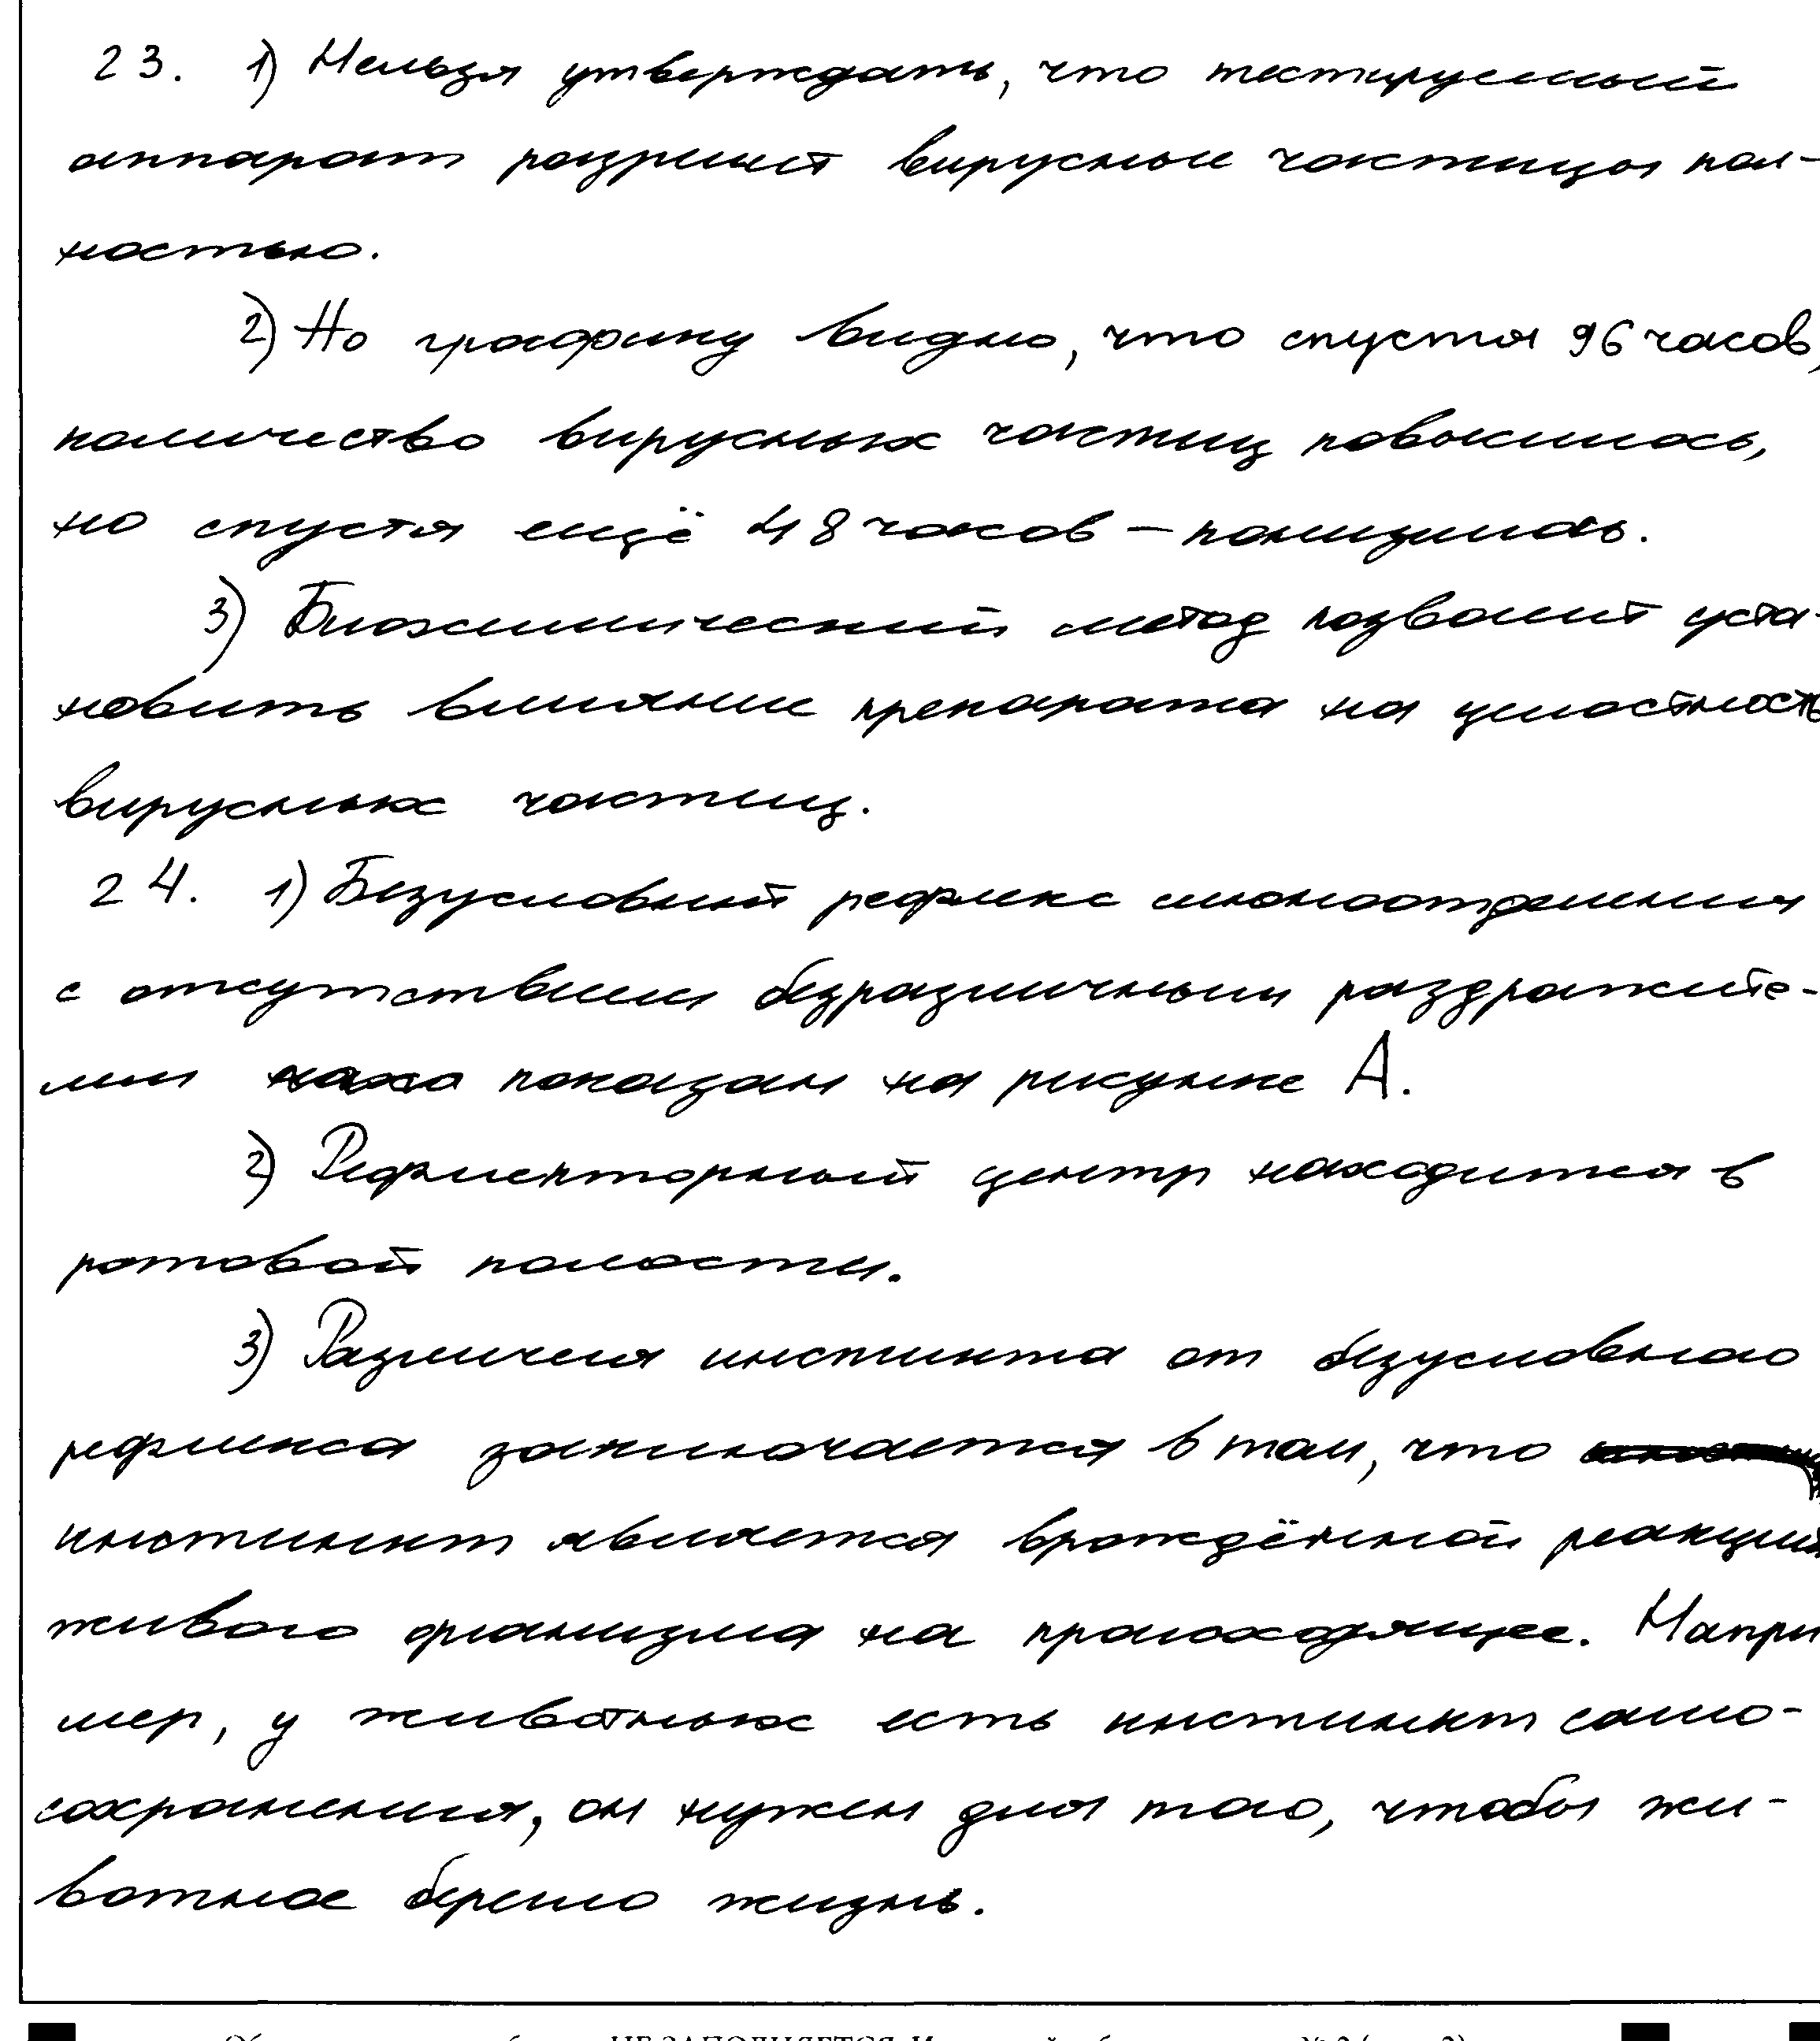 23. 1) Нельзя утверждать, что тестируемый
аппарат разрушит вирусные частицы пол-
ностью.
2) По графику видно, что спустя 96 часов,
количество вирусных частиц повысилось,
но спустя ещё 48 часов – понизилось.
3) Биохимический метод позволит уста-
новить влияние препарата на целостность
вирусных частиц.
24. 1) Безусловный рефлекс слюноотделения
с отсутствием безразличным раздражите-
лем показан на рисунке А.
2) Рефлекторный центр находится в
ротовой полости.
3) Различия инстинкта от безусловного
рефлекса заключается в том, что
инстинкт является врождённой реакцией
живого организма на происходящее. Напри
мер, у животных есть инстинкт само-
сохранения, он нужен для того, чтобы жи-
вотное берегло жизнь.
НЕ ЗАПОЛНЯЕТСЯ.